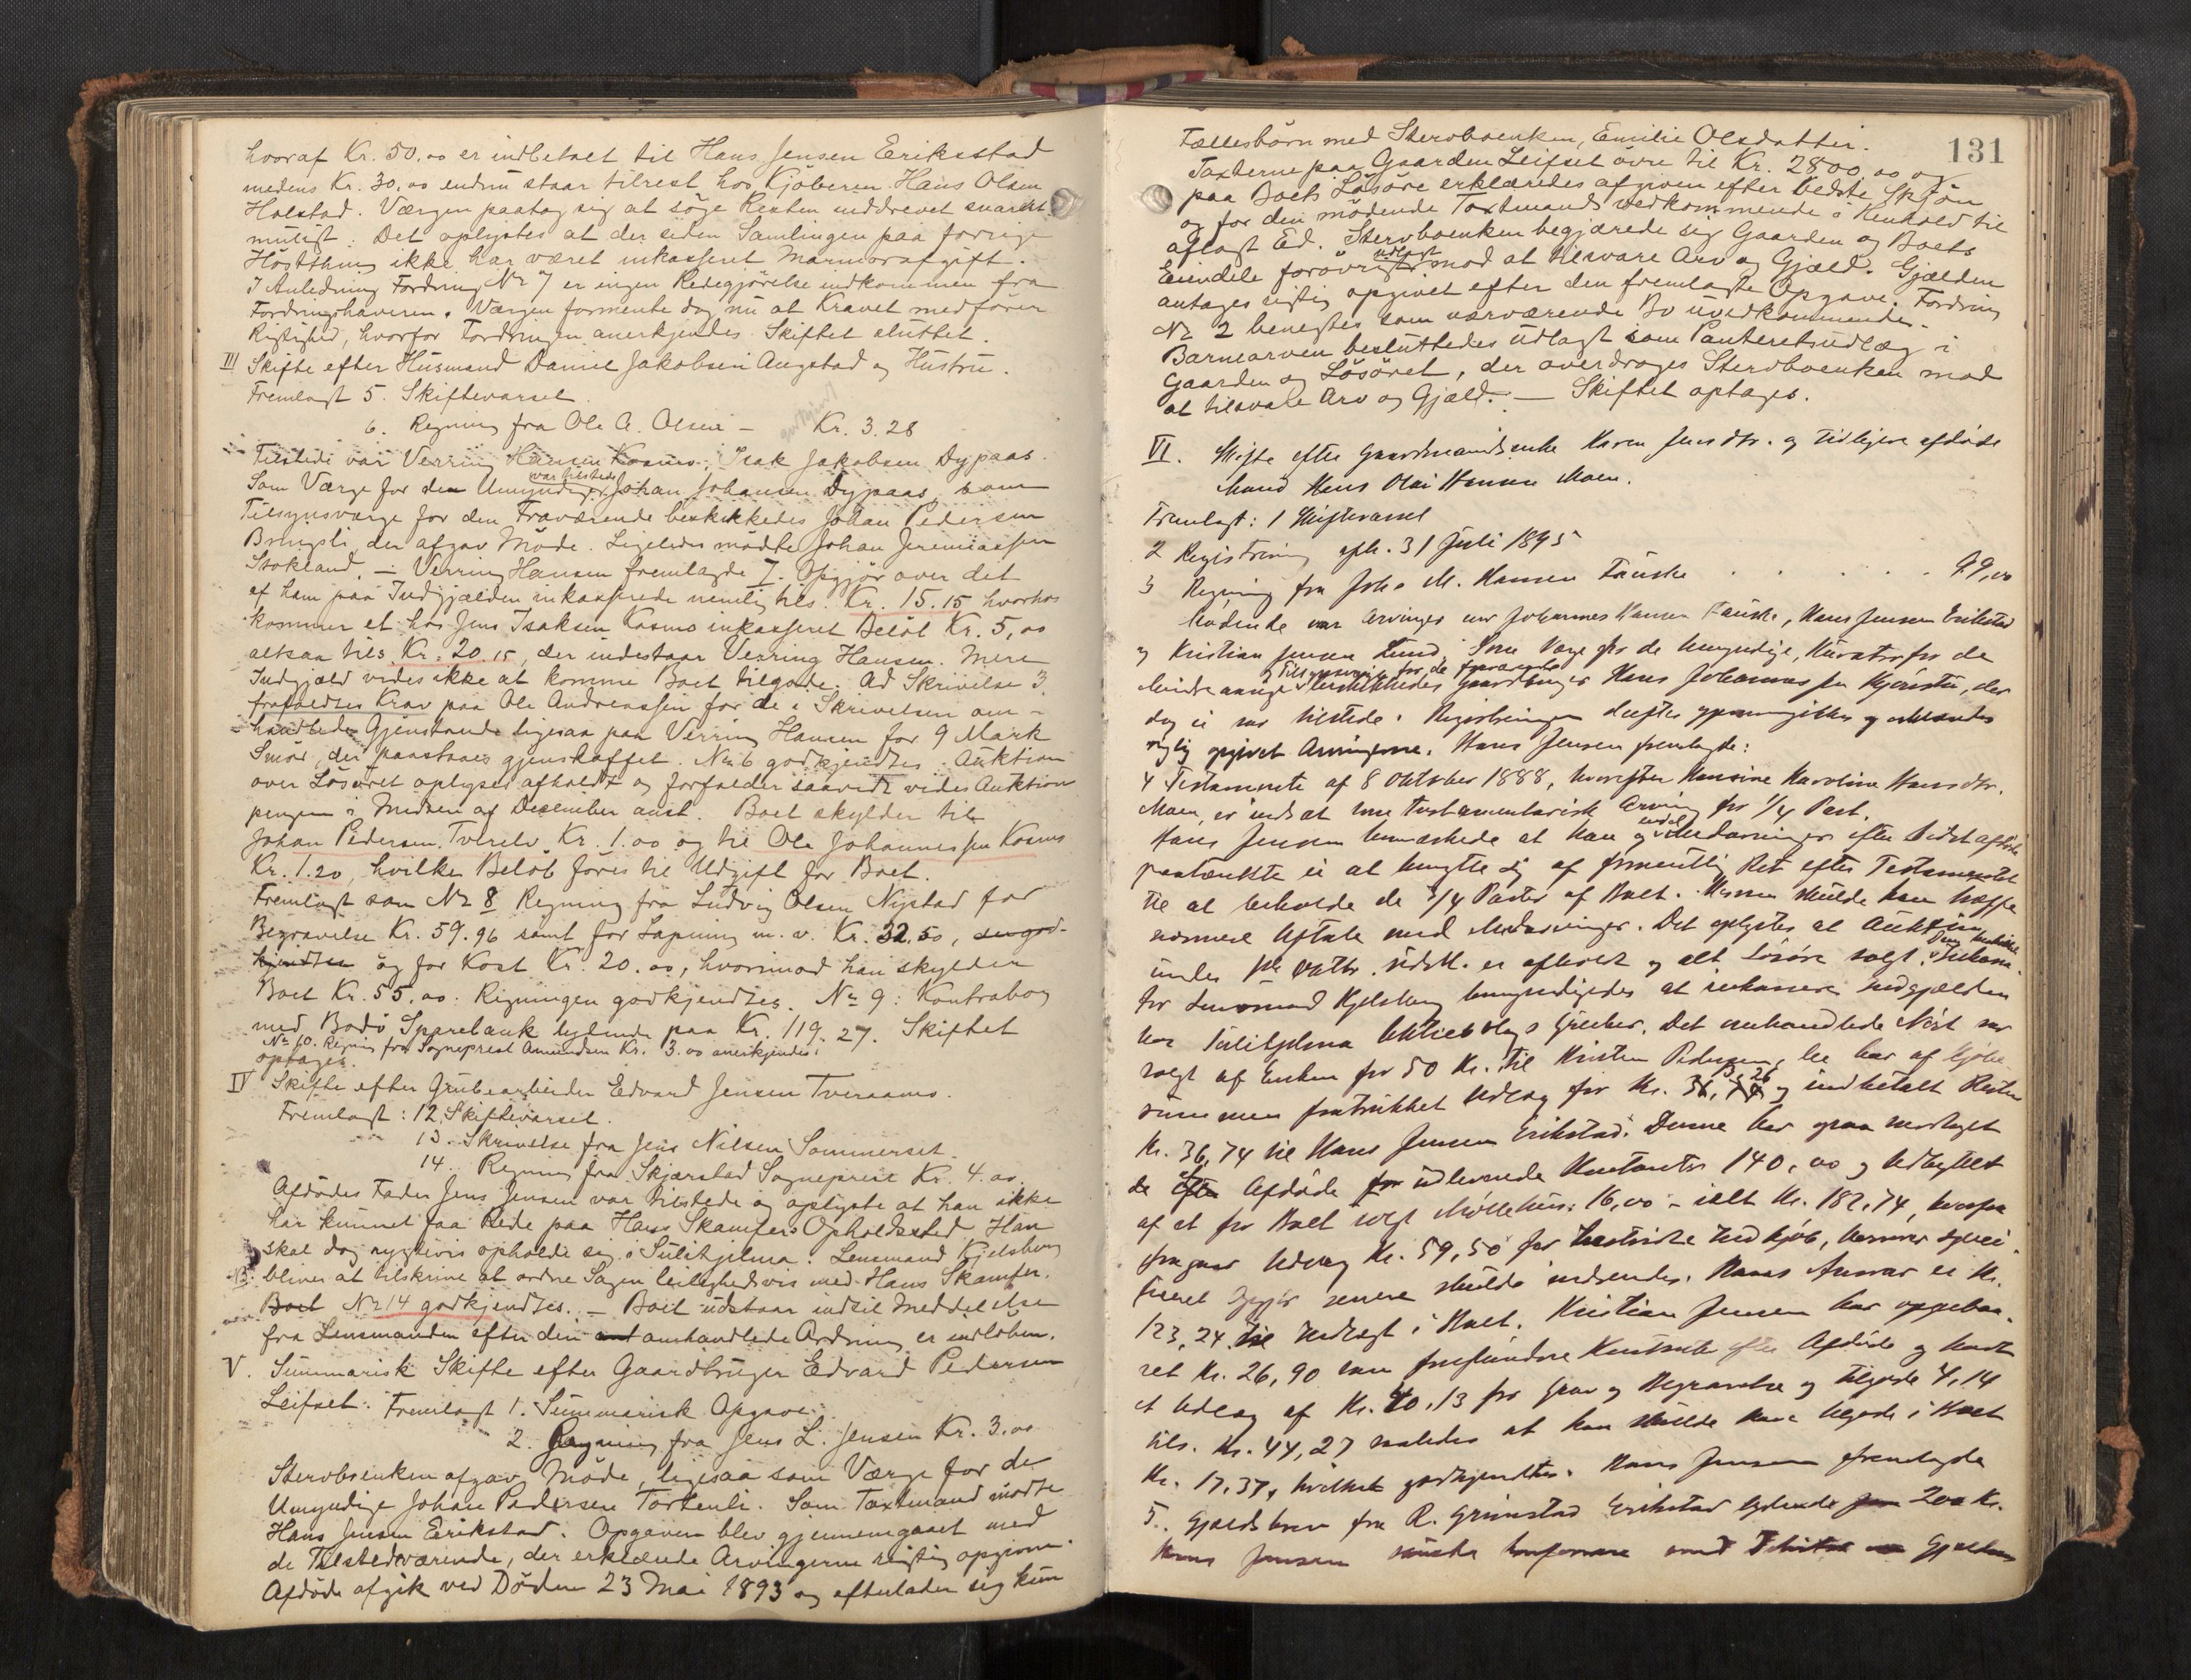 hvoraf Kr. 50.00 er indbetalt til Hans Jensen Erikstad
medens Kr. 30.00 endnu staar tilrest hos Kjøberen Hans Olsen
Holstad. Værgen paatog sig at søge Resten inddrevet snarest
muligt. Det oplystes at der siden Samlingen paa forrige
Høstthing ikke har været inkasseret Marmorafgift.
I Anledning Fordring No 7 er ingen Redegjørelse indkommen fra
Fordringshaveren. Værgen formente dog nu at Kravet medfører
Rigtighed, hvorfor Fordringen anerkjendes. Skiftet sluttet.
III Skifte efter Husmand Daniel Jakobsen Augstad og Hustru.
Fremlagt 5. Skiftevarsel
6. Regning fra Ole A. Olsen – Kr. 3.28
Tilstede var Verring Hansen Kosmo, Isak Jakobsen Dypaas.
Som Værge for den Umyndige var tilstede Johan Johansen Dypaas, som
Tilsynsværge for den Fraværende beskikkedes Johan Pedersen
Bringsli, der afgav Møde. Ligeledes mødte Johan Jeremiassen
Stokland. – Verring Hansen fremlagde 7. Opgjør over det
af ham paa Indgjælden inkasserede nemlig tils. Kr. 15.15 hvorhos
kommer et hos Jens Isaksen Kosmo inkasseret Beløb Kr. 5,00
altsaa tils Kr. 20.15, der indestaar Verring Hansen. Mere
Indgjæld vides ikke at komme Boet tilgode. Ad Skrivelse 3.
frafaldtes Krav paa Ole Andreassen for de i Skrivelsen om-
handlede Gjenstande ligesaa paa Verring Hansen for 9 Mark
Smør, der paastaaes gjenskaffet. No 6 godkjendtes. Auktion
over Løsøret oplyses afholdt og forfalder saavidt vides Auktion
pengene i Midten af December anst. Boet skylder til
Johan Pedersen Tverelv Kr. 1.00 og til Ole Johannessen Kosmo
Kr. 1.20, hvilke Beløb føres til Udgift for Boet.
Fremlagt som No 8 Regning fra Ludvig Olsen Nystad for
Begravelse Kr. 59.96 samt for Lapning m. v. Kr. 32.50, der god-
kjendtes og for Kost Kr. 20.00, hvorimod han skylder
Boet Kr. 55.00. Regningen godkjendtes. No 9: Kontrabog
med Bodø Sparebank lydende paa Kr. 119.27. Skiftet
No 10. Regning fra Sogneprest Amundsen Kr. 3.00 anerkjendes.
optages.
IV Skifte efter Grubearbeider Edvard Jensen Tveraamo.
Fremlagt: 12. Skiftevarsel.
13. Skrivelse fra Jens Nilsen Sommerset.
14. Regning fra Skjærstad Sogneprest Kr. 4.00
Afdødes Fader Jens Jensen var tilstede og oplyste at han ikke
har kunnet faa Rede paa Hans Skamfers Opholdssted. Han
skal dog rygtevis opholde sig i Sulitjelma. Lensmand Kjelsberg
bliver at tilskrive at ordne Sagen leilighedsvis med Hans Skamfer.
Boet No 14 godkjendtes. – Boet udstaar indtil Meddelelse
fra Lensmanden efter den omhandlede Ordning er indløben.
V. Summarisk Skifte efter Gaardbruger Edvard Pedersen
Leifset. Fremlagt 1. Summarisk Opgave.
2. Regning fra Jens L. Jensen Kr. 3.00
Stervboenken afgav Møde, ligesaa som Værge for de
Umyndige Johan Pedersen Tortenli. Som Taxtmand mødte
Hans Jensen Erikstad. Opgaven blev gjennemgaaet med
de Tilstedeværende, der erklærede Arvingerne rigtig opgivne.
Afdøde afgik ved Døden 23 Mai 1893 og efterlader sig kun
131
Fællesbørn med Stervboenken, Emilie Olsdatter.
Taxterne paa Gaarden Leifset øvre til Kr. 2800,00 og
paa Boets Løsøre erklæredes afgiven efter bedste Skjøn
og for den mødende Taxtmands vedkommende i Henhold til
aflagt Ed. Stervboenken begjærede sig Gaarden og Boets
Eiendele forøvrigt udlagt mod at tilsvare Arv og Gjæld. Gjælden
antages rigtig opgivet efter den fremlagte Opgave. Fordring
No 2 benegtes som nærværende Bo uvedkommende.
Barnearven besluttedes udlagt som Panteretsudlæg i
Gaarden og Løsøret, der overdrages Stervboenken mod
at tilsvare Arv og Gjæld. – Skiftet optages.
VI. Skifte efter Gaardmandsenke Karen Jensdtr. og tidligere afdøde
Mand Hans Olai Hansen Moen.
Fremlagt: 1 Skiftevarsel
2 Registrering afh. 31 Juli 1895
3 Regning fra Johs M. Hansen Fauske . . . . . 99,00
Mødende var Arvinger Johannes Hansen Fauske, Hans Jensen Erikstad
og Kristian Jensen Lund. Som Værge for de Umyndige, Kurator for de
Mindreaarige & Tilsynsværge for de fraværende beskikkedes Gaardbruger Hans Johannessen Kjønstu, der
dog ei var tilstede. Registreringen deeftes gjennemgikkes og erklæredes
rigtig opgivet Arvingerne. Hans Jensen fremlagde:
4 Testamente af 8 Oktober 1888, hvorefter Hansine Karoline Hansdtr.
Moen, er indsat som testamentarisk Arving for 1/4 Part.
Hans Jensen bemærkede at han og Medarvinger efter sidst afdøde
paatænkte ei at benytte sig af formentlig Ret efter Testamentet
til at beholde de 3/4 Parter af Boet. Herom skulde han træffe
nærmere Aftale med Medarvinger. Det oplystes at Auktion
under Oktbr. sidstl. er afholdt og alt Løsøre solgt. Inkassa-
tor Lensmand Kjelsberg bemyndigedes at inkassere Indgjælden
hos Sulitjelma Aktiebolags Gruber. Det omhandlede Nøst var
solgt af Enken for 50 Kr. til Kristen Pedersen, der har af Kjøbe
summen fratrukket Udlæg for Kr. 13,26 og indbetalt Resten
Kr. 36,74 til Hans Jensen Erikstad. Denne har ogsaa modtaget
de efter Afdøde udleverede Kontanter 140,00 og Udbyttet
af et for Boet solgt Møllehus: 16,00 – ialt Kr. 182,74, hvorfra
fragaar Udlæg Kr. 59,50 for Indkjøb, hvorover speci-
ficeret Opgjør senere skulde indsendes. Hans Ansvar er Kr.
123,24 Indlagt i Boet. Kristian Jensen har oppebaa-
ret Kr. 26,90 som forefundne Kontanter efter Afdøde og havt
et Udlæg af Kr. 40,13 for Grav og Begravelse og tilgode 4,14
tils. Kr. 44,27 saaledes at han skulde have tilgode i Boet
Kr. 17,37, hvilket godkjendtes. Hans Jensen fremlagde
5. Gjældsbrev fra R. Grimstad Erikstad lydende 200 Kr.
Hans Jensen skulde konferere med Debitor Gjælden